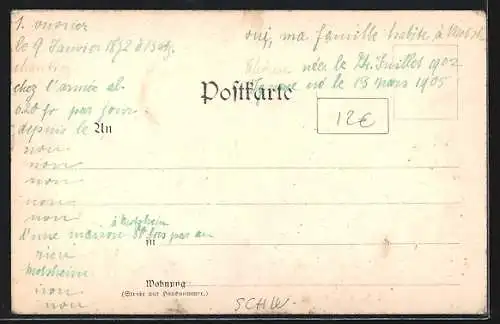 1. ouvrier
le 9 Janvier 1872 à
chez l'armée al.
0.20 fr par jour
depuis le
non
non
non
non
non
à Molsheim
d'une maison 80 frs par an
rien
Molsheim
non
non
oui, ma famille habite à Molsh
née le 24 Juillet 1902
né le 13 mars 1905
Postkarte
12€
An
in
Wohnung
(Straße und Hausnummer.)
SCHW.